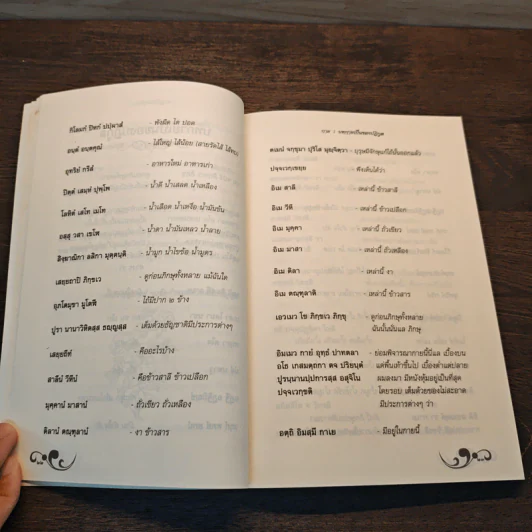 กิโลมกํ ปิหกํ ปปฺผาสํ - พังผืด ไต ปอด
อนฺตํ อนฺตคุณํ - ไส้ใหญ่ ไส้น้อย (สายรัดไส้
อุทริยํ กรีสํ - อาหารใหม่ อาหารเก่า
ปิตฺตํ เสมฺหํ ปุพฺโพ - น้ำดี น้ำเสลด น้ำเหลือง
โลหิตํ เสโท เมโท - น้ำเลือด น้ำเหงื่อ น้ำมันข้น
อสฺสุ วสา เขโฬ - น้ำตา น้ำมันเหลว น้ำลาย
สิงฺฆาณิกา ลสิกา มุตฺตนฺติ - น้ำมูก น้ำไขข้อ น้ำมูตร
เสยฺยถาปิ ภิกฺขเว - ดูก่อนภิกษุทั้งหลาย แม้ฉันใด
อุภโตมุขา มูโตฬี - ไถ้มีปาก ๒ ข้าง
ปูรา นานาวิหิตสฺส ธญฺญสฺส - เต็มด้วยธัญชาติมีประการต่างๆ
เสยฺยถีทํ - คืออะไรบ้าง
สาลีนํ วีหีนํ - คือข้าวสาลี ข้าวเปลือก
มุคฺคานํ มาสานํ - ถั่วเขียว ถั่วเหลือง
ติลานํ ตณฺฑุลานํ - งา ข้าวสาร
ตเมนํ จกฺขุมา ปุริโส มุญฺจิตฺวา - บุรุษมีจักษุแก้ไถ้นั้นออกแล้ว
ปจฺจเวกฺเขยฺย - พึงเห็นได้ว่า
อิเม สาลี - เหล่านี้ ข้าวสาลี
อิเม วีหี - เหล่านี้ ข้าวเปลือก
อิเม มุคฺคา - เหล่านี้ ถั่วเขียว
อิเม มาสา - เหล่านี้ ถั่วเหลือง
อิเม ติลา - เหล่านี้ งา
อิเม ตณฺฑุลาติ - เหล่านี้ ข้าวสาร
เอวเมว โข ภิกฺขเว ภิกฺขุ - ดูก่อนภิกษุทั้งหลาย
นั้นนั้นแล ภิกษุ
อิมเมว กายํ อุทฺธํ ปาทตลา - ย่อมพิจารณากายนี้นี่แล เบื้องบน
อโธ เกสมตฺถกา ตจ ปริยนฺตํ แต่พื้นเท้าขึ้นไป เบื้องต่ำแต่ปลาย
ปูรนฺนานปฺปการสฺส อสุจิโน ผมลงมา มีหนังหุ้มอยู่เป็นที่สุด
ปจฺจเวกฺขติ โดยรอบ เต็มด้วยของไม่สะอาด
มีประการต่างๆ ว่า
อตฺถิ อิมสฺมึ กาเย - มีอยู่ในกายนี้